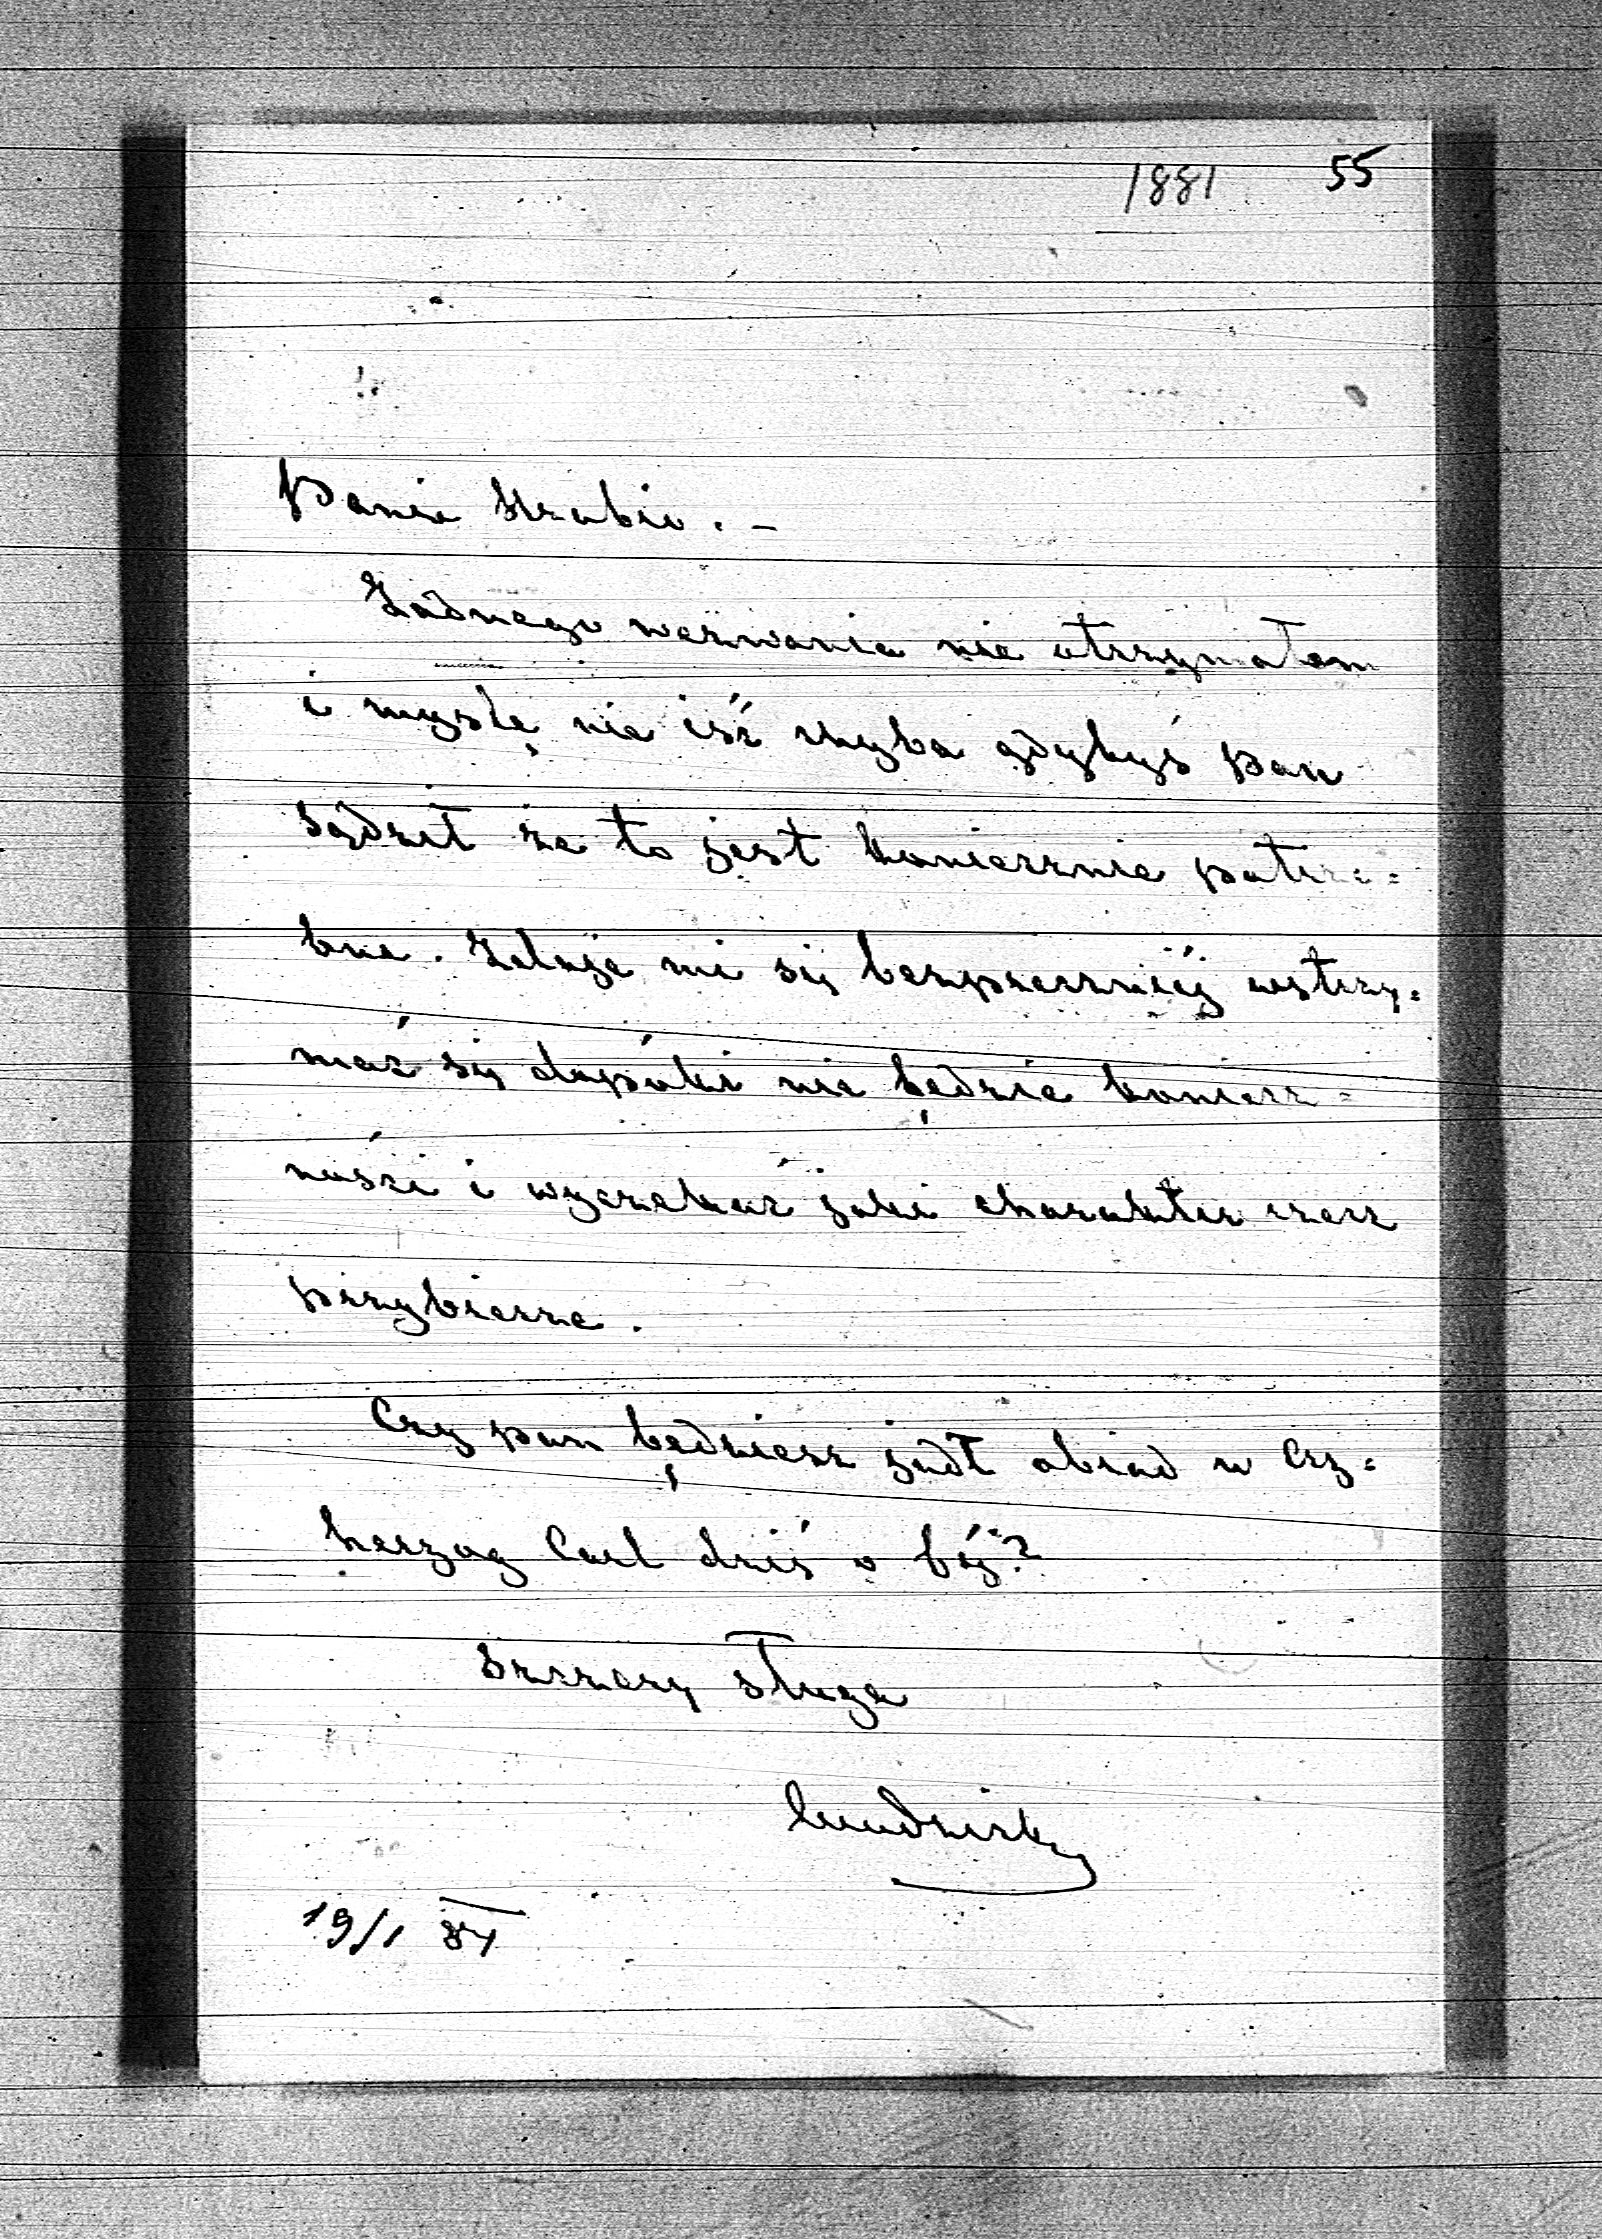 1881 55
Panie Hrabio. –
Żadnego wezwania nie otrzymałem
i myślę nie iść chyba gdybyś pan
sądził że to jest koniecznie potrze=
bne. Zdaje mi się bezpieczniéj wstrzy=
mać się dopóki nie będzie koniecz=
ności i wyczekać jaki charakter rzecz
przybierze.
Czy pan będziesz jadł obiad w Erz=
herzog Carl dziś o 6éj?
Szczery sługa
19/1 81